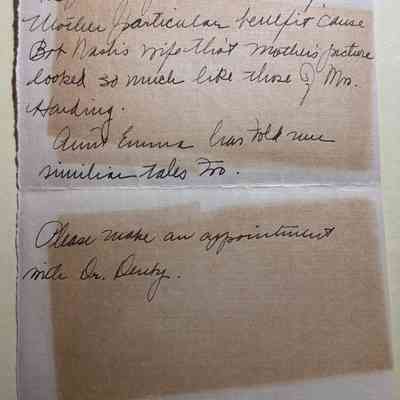 Mother particular benefit 'cause
Bob Nash's wife that mother's picture
looked so much like those of Mr.
Harding.
Aunt Emma has told me
similiar tales too.
Please make an appointment
with Dr. Denby.